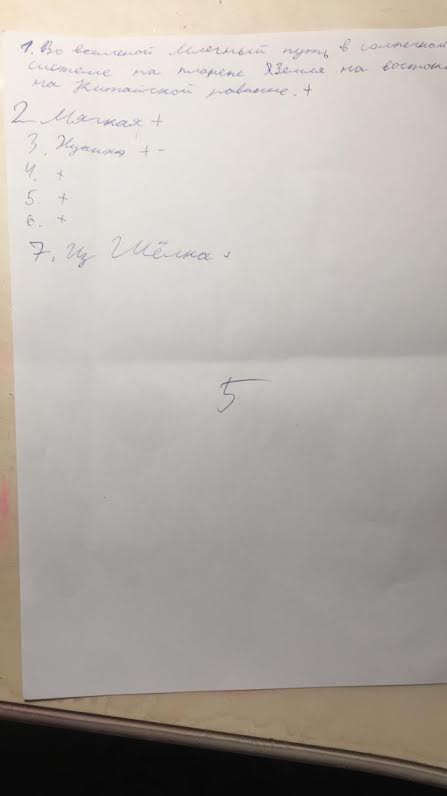 1. Во вселеной Млечный путь в солнечной
системе на планене Земля на востоке
на Китайской равнине. +
2 Мягкая +
3. + -
4. +
5. +
6. +
7. Из Шёлка +
5